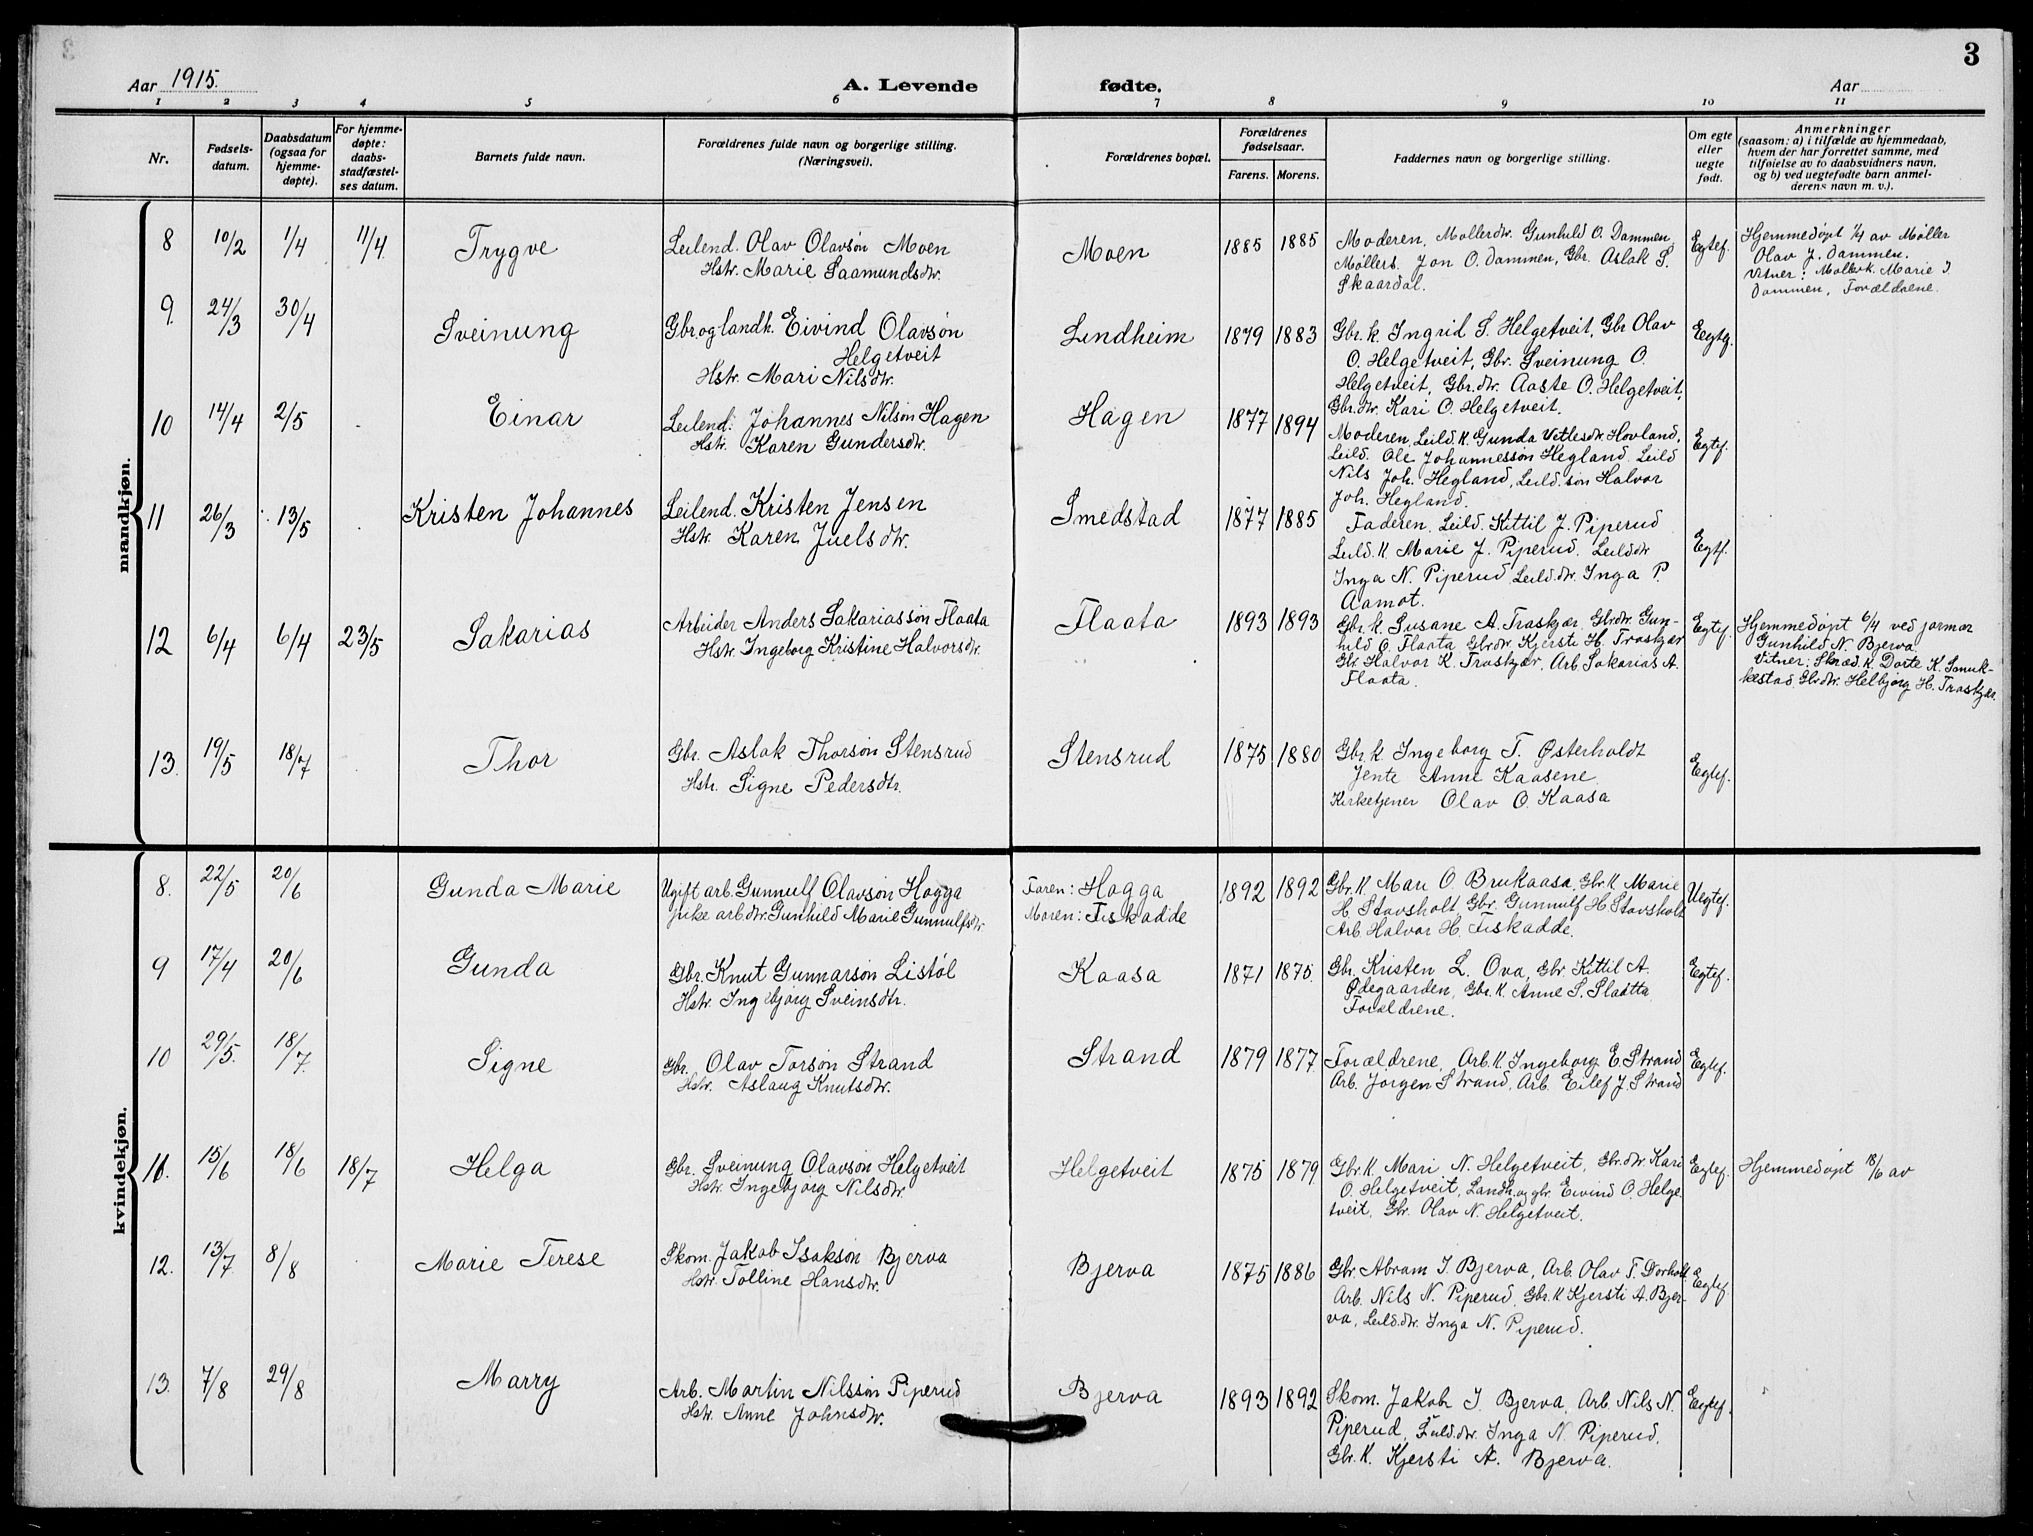 3
Aar 1915.
A. Levende fødte.
Aar
1 2 3 4 5 6 7 8 9 10 11
Nr.
Fødsels-
datum.
Daabsdatum
(ogsaa for
hjemme-
døpte).
For hjemme-
døpte:
daabs-
stadfæstel-
ses datum.
Barnets fulde navn.
Forældrenes fulde navn og borgerlige stilling.
(Næringsvei).
Forældrenes bopæl.
Forældrenes
fødselsaar.
Farens. Morens.
Faddernes navn og borgerlige stilling.
Om egte
eller
uegte
født.
Anmerkninger
(saasom: a) i tilfælde av hjemmedaab,
hvem der har forrettet samme, med
tilføielse av to daabsvidners navn,
og b) ved uegtefødte barn anmel-
derens navn m. v.).
mandkjøn.
8 10/2 1/4 11/4 Trygve
Leilend. Olav Olavsøn Moen
Hstr. Marie Saamundsdtr.
Moen 1885 1885
Moderen, Møllerdtr. Gunhild O. Dammen,
Møllers. Jon O. Dammen, Gbr. Aslak S.
Skaardal.
Egtef.
Hjemmedøpt 1/4 av Møller
Olav J. Dammen.
Vitner: Møllerk. Marie J.
Dammen, Forældrene.
9. 24/3 30/4 Sveinung
Gbr. og landh. Eivind Olavsøn
Helgetveit
Hstr. Mari Nilsdtr.
Lindheim 1879 1883
Gbr. k. Ingrid S. Helgetveit, Gbr Olav
O. Helgetveit, Gbr. Sveinung O.
Helgetveit, Gbr. dtr. Aaste O. Helgetveit,
Gbr. dtr. Kari O. Helgetveit.
Egtef.
10 14/4 2/5 Einar
Leilend. Johannes Nilsøn Hagen
Hstr. Karen Gundersdtr.
Hagen 1877 1894
Moderen, Leild. K. Gunda Vetlesdtr. Hovland,
Leild. Ole Johannessøn Hegland. Leild
Nils Joh. Hegland, Leild. søn Halvor
Joh. Hegland.
Egtef.
11 26/3 13/5 Kristen Johannes
Leilend. Kristen Jensen
Hstr. Karen Juelsdtr.
Smedstad 1877 1885
Faderen, Leild. Kittil J. Piperud
Leild. K. Marie J. Piperud. Leilddtr
Inga N. Piperud, Leild. dtr. Inga P.
Aamot.
Egtf.
12 6/4 6/4 23/5 Sakarias
Arbeider Anders Sakariassøn Flaata
Hstr. Ingeborg Kristine Halvorsdtr.
Flaata 1893 1893
Gbr. k. Susane A. Traskjær, Gbrdtr. Gun-
hild O. Flaata Gbrdtr. Kjersti H. Traskjær
Gbr. Halvor K. Traskjær, Arb. Sakarias A.
Flaata.
Egtef.
Hjemmedøpt 6/4 ved jormor
Gunhild N. Bjerva.
Vitner: Skræd. k. Dorte K. Smuk-
kestad, Gbrdtr. Helbjørg H. Traskjær.
13. 19/5 18/7 Thor
Gbr. Aslak Thorsøn Stensrud
Hstr. Signe Pedersdtr.
Stensrud 1875 1880
Gbr. k. Ingeborg T. Østerholdt
Jente Anne Kaasene
Kirketjener Olav O. Kaasa
Egtef.
kvindekjøn.
8. 22/5 20/6 Gunda Marie
Ugift arb. Gunnulf Olavsøn Hogga
pike arbdtr. Gunhild Marie Gunnulfsdtr.
Faren: Hogga
Moren: Fiskadde
1892 1892
Gbr. K. Mari O. Brukaasa, Gbr. K. Marie
H. Stavsholt Gbr. Gunnulf H. Stavsholt
Arb. Halvor H. Fiskadde.
Uegtef.
9 17/4 20/6 Gunda
Gbr. Knut Gunnarsøn Listøl
Hstr. Ingebjørg Sveinsdtr.
Kaasa 1871 1875.
Gbr. Kristen L. Ova, Gbr. Kittil A.
Ødegaarden, Gbr. K. Anne S. Slaatta
Forældrene.
Egtef.
10 29/5. 18/7 Signe
Gbr. Olav Torsøn Strand
Hstr. Aslaug Knutsdtr.
Strand 1879 1877
Forældrene, Arb. K. Ingeborg E. Strand
Arb. Jørgen Strand, Arb. Eilef J. Strand
Egtef.
11. 15/6 18/6 18/7 Helga
Gbr. Sveinung Olavsøn Helgetveit
Hstr. Ingebjørg Nilsdtr.
Helgetveit 1875 1879
Gbr. K. Mari N. Helgetveit, Gbr. dtr. Kari
O. Helgetveit, Landh. og gbr. Eivind O. Helge-
tveit, Gbr. Olav N. Helgetveit.
Egtef.
Hjemmedøpt 18/6 av
12. 13/7 8/8 Marie Terese
Skom. Jakob Isaksøn Bjerva
Hstr. Tolline Hansdtr.
Bjerva 1875 1886
Gbr. Abram I. Bjerva, Arb. Olav T. Dorholt
Arb. Nils N. Piperud, Gbr. K Kjersti A. Bjer-
va, Leild. dtr. Inga N. Piperud.
Egtef.
13. 7/8 29/8 Marry
Arb. Martin Nilssøn Piperud
Hstr. Anne Johnsdtr.
Bjerva 1893 1892
Skom. Jakob I. Bjerva, Arb. Nils N.
Piperud, Inga N. Piperud,
Gbr. K. Kjersti A. Bjerva.
Egtef.